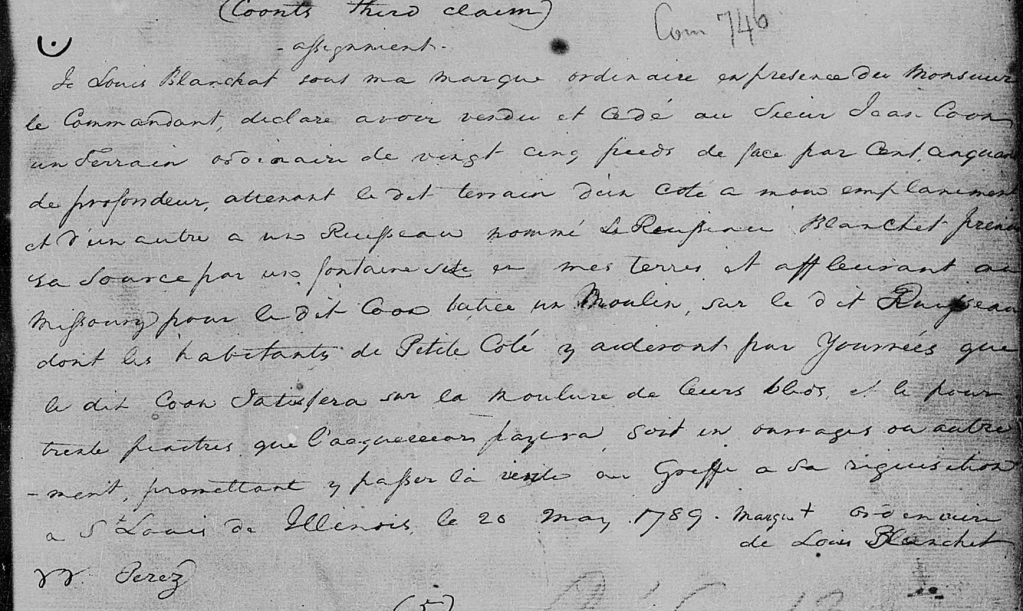 (Coonts third claim)
Com 746
- assignment -
Je Louis Blanchat sous ma marque ordinaire en presence du Monsieur
le Commandant, declare avoir vendu et Cedé au Sieur Jean Coon
un Terrain ordinaire de vingt cinq pieds de face par Cent cinquan
de profondeur, attenant le dit terrain d'un coté a mon emplacement
et d'un autre a un Ruisseau nommé Le Ruisseau Blanchet prena
sa source par un fontaine site en mes terres, et affleurant au
Missoury pour le dit Coon batice un Moulin, sur le dit Ruisseau
dont les habitants de Petite Coté y aideront par Journées que
le dit Coon Satisfera sur la moulure de leurs bleds, et le pour
trente piastres que l'acquereur payera soit en ouvrages ou autre
-ment, promettant y passer la vente au Greffe a sa riquisition
a St Louis de Illinois, le 20 May 1789. Marque + ordenaire
de Louis Blanchet
Perez
(5)